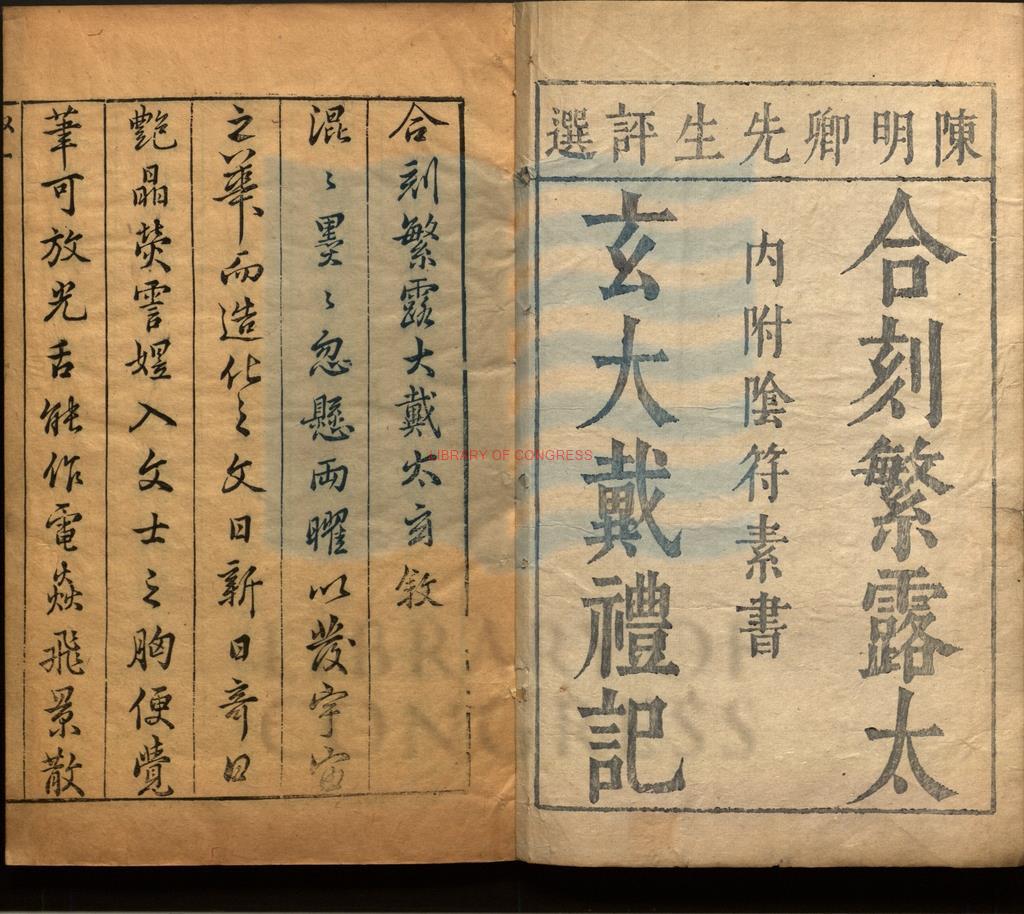 陳明卿先生評選
合刻繁露太
內附陰符素書
玄大戴禮記
合刻繁露大戴太玄敘
混〻墨〻忽懸兩曜以發宇宙
之華而造化之文日新日奇日
艷晶熒雲煜入文士之胸便覺
筆可放光舌能作電焱飛景散
LIBRARY OF CONGRESS